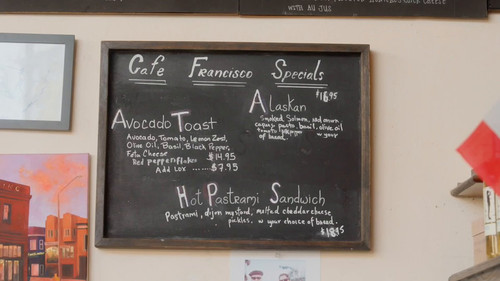 WITH AU JUS
Cafe Francisco Specials
Alaskan $16.95
Smoked Salmon, red onion
capers, pesto, basil, olive oil
tomato w your
of bread.
Avocado Toast
Avocado, Tomato, Lemon Zest,
Olive Oil, Basil, Black Pepper,
Feta Cheese
Red pepper flakes $14.95
Add Lox ....... $7.95
Hot Pastrami Sandwich
Pastrami, dijon mystard, melted cheddar cheese,
pickles. w your choice of bread.
$18.95